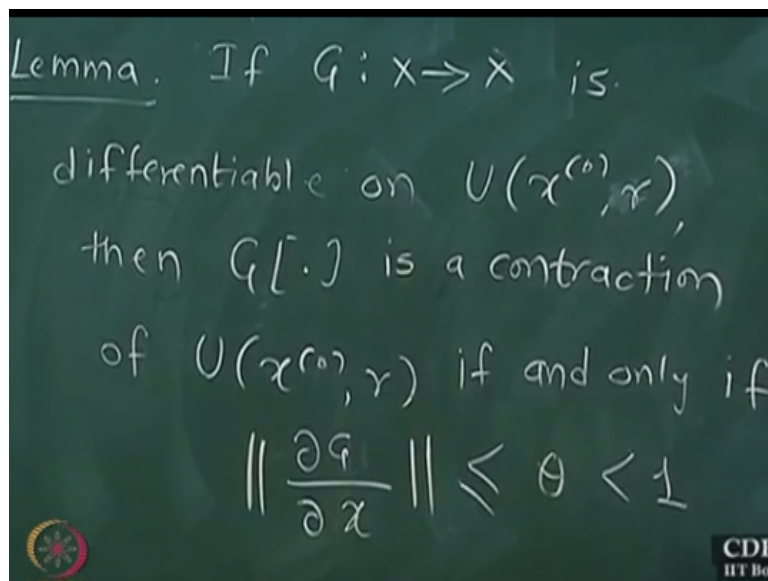 Lemma. If G : X → X is
differentiable on U(x⁽⁰⁾, r),
then G[.] is a contraction
of U(x⁽⁰⁾, r) if and only if
‖ ∂G/∂x ‖ ≤ θ < 1